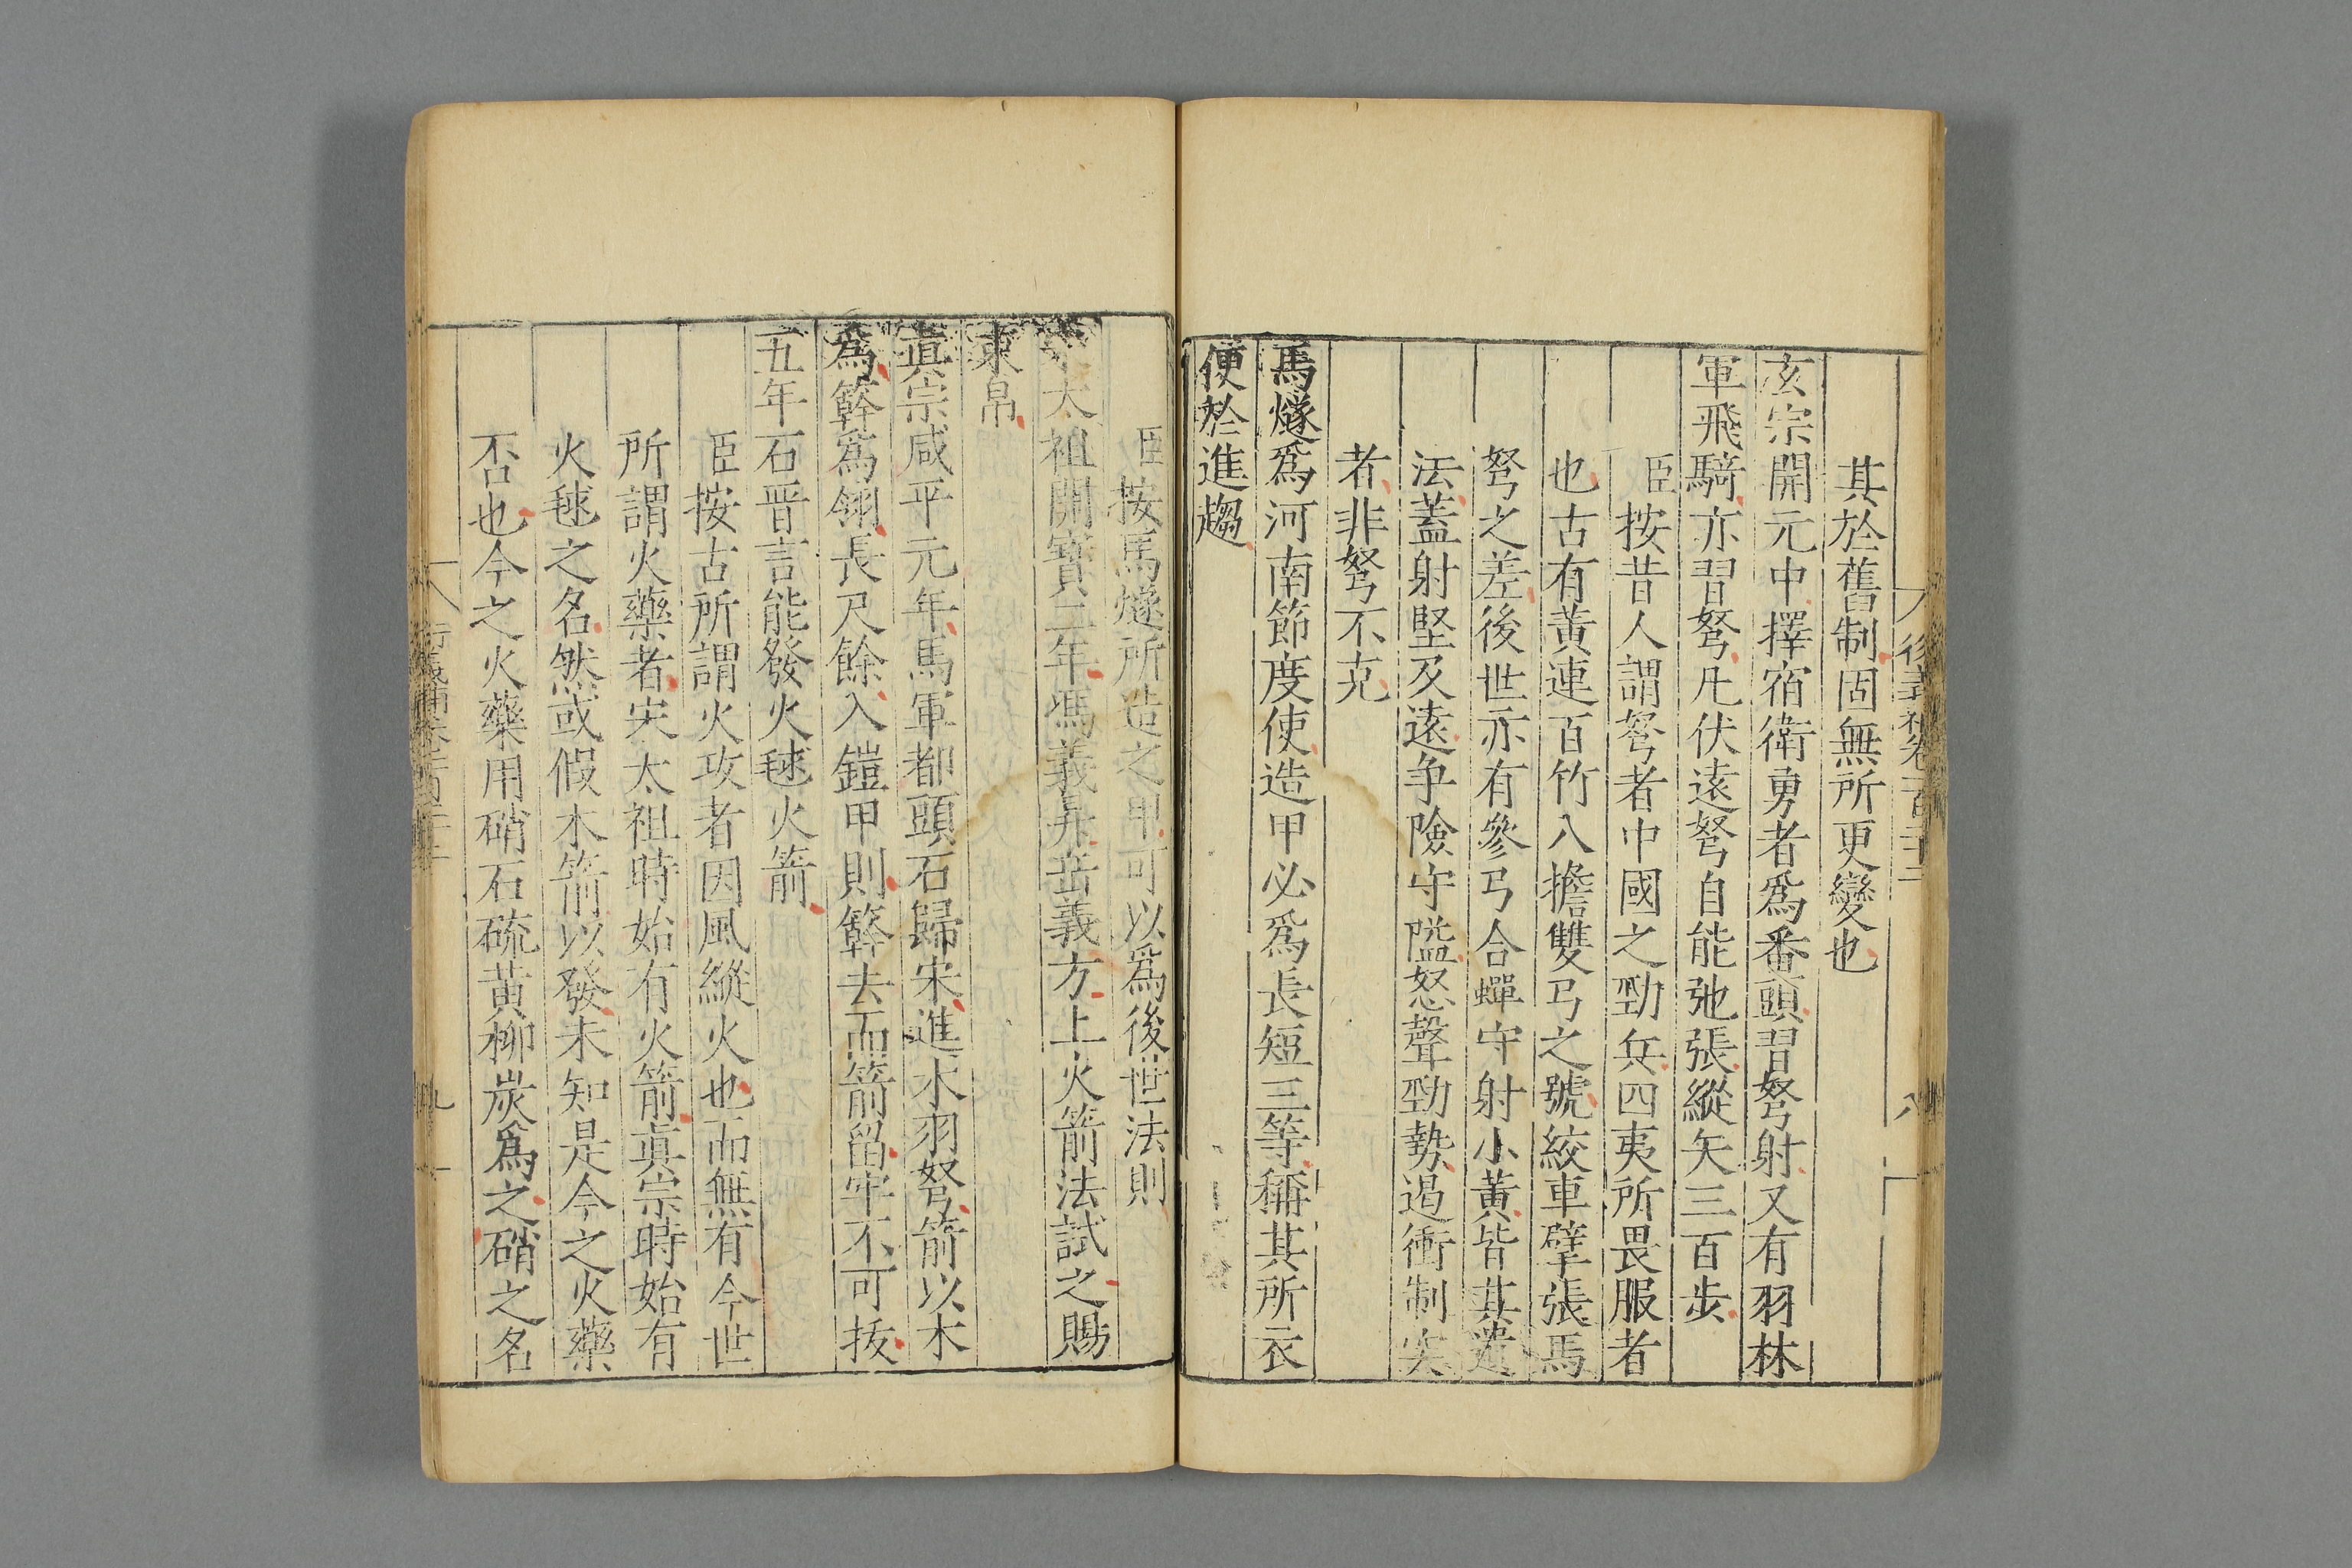 其於舊制固無所更變也
玄宗開元中擇宿衛勇者爲番頭習弩射又有羽林
軍飛騎亦習弩凡伏遠弩自能弛張縱矢三百步
臣按昔人謂弩者中國之勁兵四夷所畏服者
也古有黃連百竹八擔雙弓之號絞車擘張馬
弩之差後世亦有參弓合蟬守射小黃皆其遺
法蓋射堅及遠爭險守隘怒聲勁勢遏衝制突
者非弩不克
馬燧爲河南節度使造甲必爲長短三等稱其所衣
便於進趨
臣按馬燧所造之甲可以爲後世法則
宋太祖開寶三年馮義昇岳義方上火箭法試之賜
束帛
眞宗咸平元年馬軍都頭石歸宋進木羽弩箭以木
爲簳爲翎長尺餘入鎧甲則簳去而箭留牢不可拔
五年石晋言能發火毬火箭
臣按古所謂火攻者因風縱火也而無有今世
所謂火藥者宋太祖時始有火箭眞宗時始有
火毬之名然或假木箭以發未知是今之火藥
否也今之火藥用硝石硫黃柳炭爲之硝之名
九